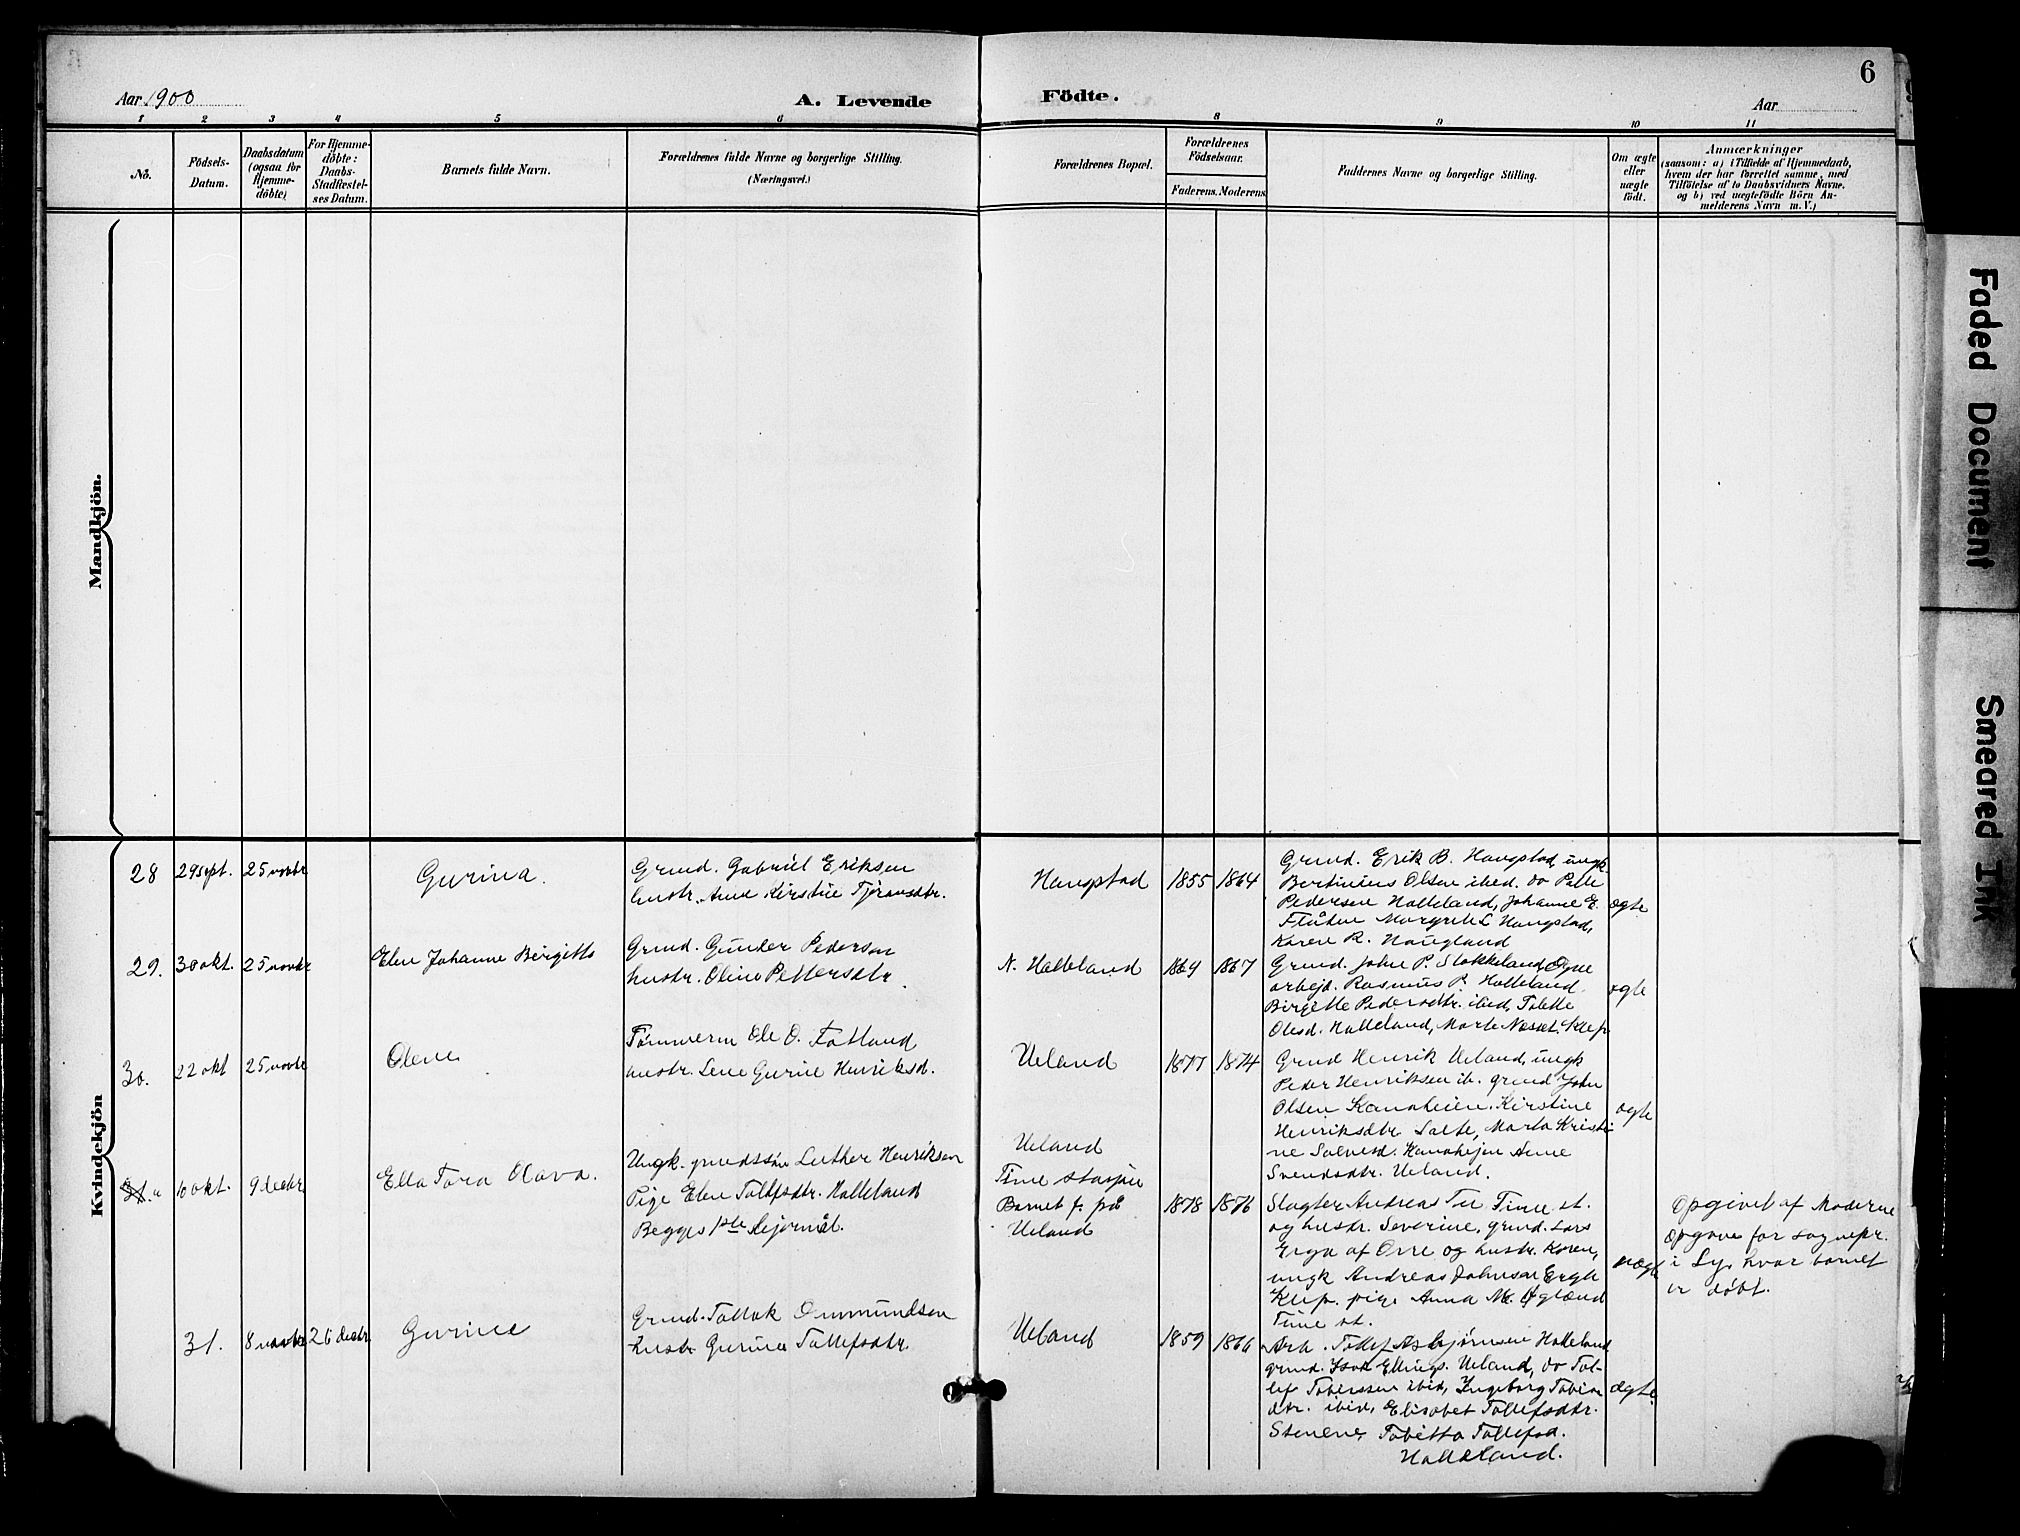 Aar 1900
A. Levende
Födte.
Aar
6
1 2 3 4 5 6 8 9 10 11
No.
Födsels-
Datum.
Daabsdatum
(ogsaa for
Hjemme-
döbte)
For Hjemme-
döbte:
Daabs-
Stadfæstel-
ses Datum.
Barnets fulde Navn.
Forældrenes fulde Navne og borgerlige Stilling.
(Næringsvei.)
Forældrenes Bopæl.
Forældrenes
Födselsaar.
Faderens. Moderens.
Faddernes Navne og borgerlige Stilling.
Om ægte
eller
uægte
födt.
Anmærkninger
(saasom: a) i Tilfælde af Hjemmedaab,
hvem der har forrettet samme, med
Tilföielse af to Daabsvidners Navne.
og b) ved uægtefödte Börn An-
melderens Navn m. V.)
Mandkjön.
Kvindekjön
28
29 sept.
25 novbr
Gurina.
Grmd. Gabriel Eriksen
hustr. Ane Kirstie Tjøransdtr.
Haugstad
1855 1864
Grmd. Erik B. Haugstad, ungk
Bertinius Olsen ibed. do Palle
Pedersen Halleland, Johanne E.
Flåten Margrete L Haugstad,
Karen R. Haugland
ægte
29.
30 okt.
25 novbr
Elen Johanne Birgitte
Grmd. Gunder Pedersen
hustr. Oline Pettersdtr.
N. Halleland
1864 1867
Grmd. John P. Stokkeland, Ogne
arbejd. Rasmus P. Halleland.
Birgitte Pedersdtr. ibed, Talette
Olesd. Halleland, Marte Næset, Klep.
ægte
30.
22 okt
25 novbr
Olene
Tømmerm Ole O. Fotland
hustr. Lene Gurine Henriksd.
Ueland
1877 1874
Grmd Henrik Ueland, ungk
Peder Henriksen ib. grmd John
Olsen Kanaheien. Kirstine
Henriksdtr Salte, Marta Kristi-
ne Salvesd. Kanaheien Anne
Svendsdtr. Ueland.
ægte
31.
10 okt.
9 decbr
Ella Tora Olava.
Ungk. grmdssøn Luther Henriksen
Pige Elen Tollefsdtr. Halleland
Begges 1ste Lejermål.
Ueland
Time stasjon
Barnet f. på
Ueland
1878 1876
Slagter Andreas Tu Time st.
og hustr. Severine, grmd. Lars
Erga af Orre og hustr. Karen,
ungk Andreas Johnsen Erga
Klep. pige Anna M. Øglænd
Time st.
uægte
Opgivet af Moderne
Opgave for sognepr.
i Ly, hvor barnet
er døbt.
31.
8 novbr
26 decbr
Gurine
Grmd. Tollak Ommundsen
hustr Gurine Tollefsdtr.
Ueland
1859 1866
Arb. Tollef Asbjørnsen Halleland
grmd. Isak Ellings. Ueland, do Tol-
lef Tobiassen ibid, Ingeborg Tobias
dtr. ibid, Elisabet Tollefsdtr.
Stenene, Tobitta Tollefsd.
Halleland.
ægte.
Faded Document
Smeared Ink